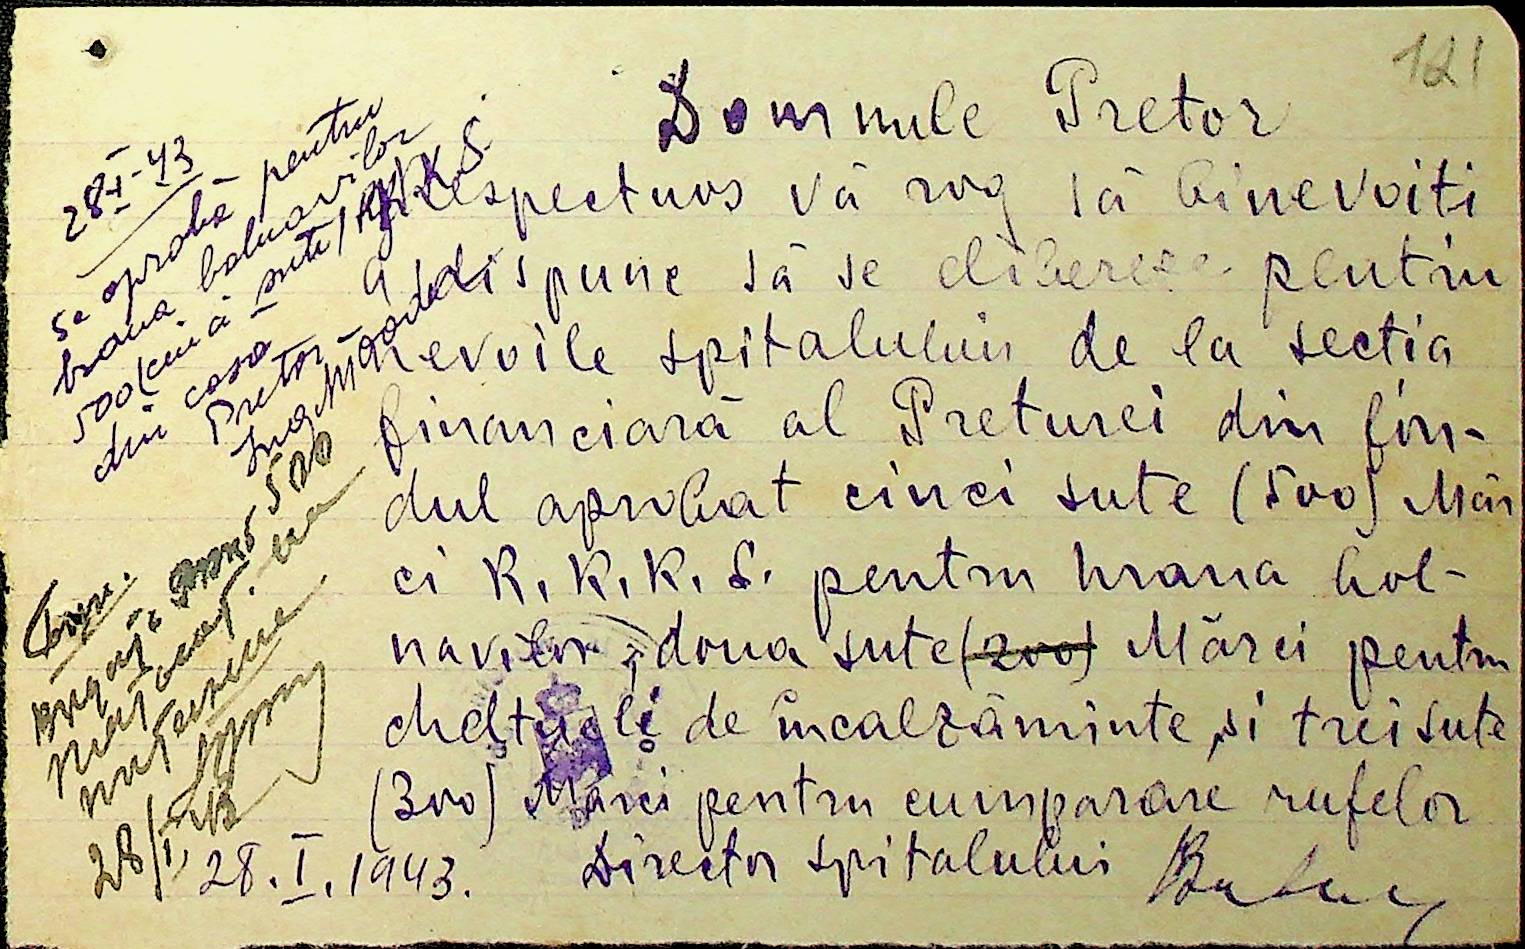 121
Domnule Pretor
Respectuos vă rog să binevoiti
a dispune să se elibereze pentru
nevoile spitalului de la sectia
financiară al Preturei din fon-
dul aprobat cinci sute (500) Măr
ci R.K.K.S. pentru hrana bol-
navilor, doua sute (200) Mărci pentru
cheltueli de încalzăminte și trei sute
(300) Mărci pentru cumparare rufelor
28.I.1943. Director spitalului
28-I-43
Se aprobă pentru
hrana bolnavilor
500 (cinci sute) RKKS
din casa
Pretor
Ing.
500
28/I 43